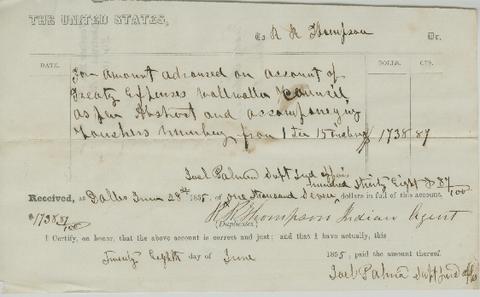 THE UNITED STATES,
To R R Thompson Dr.
DATE. DOLLS. CTS.
For amount advanced on account of
Treaty Expenses Wallwalla Council,
as per Abstract and accompanying
Vouchers numbering from 1 to 15 1738 87
Joel Palmer Supt Ind affairs
hundred thirty Eight & 87/100
Received, at Dalles June 28th 1855, of one thousand Seven dollars in full of this account.
$1738 87/100 R R Thompson Indian Agent
(Duplicates)
I Certify, on honor, that the above account is correct and just; and that I have actually, this
Twenty Eighth day of June 1855, paid the amount thereof.
Joel Palmer Supt Ind